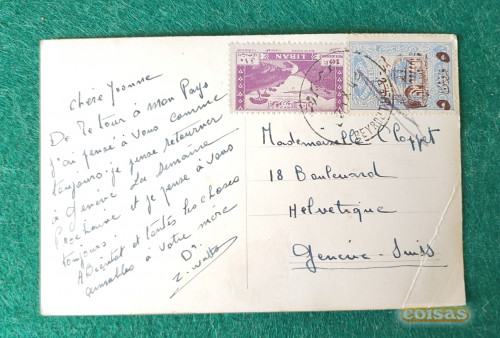 Chère Yvonne
De Retour à mon Pays
j'ai pensé à vous comme
toujours. je pense retourner
à Genève la semaine
Prochaine et je pense à vous
toujours.
A Bientôt et toutes les choses
aimables à votre mère
Dr.
10P
LIBAN
BEYROUTH
Mademoiselle Chappet
18 Boulevard
Helvetique
Genève - Suiss
coisas